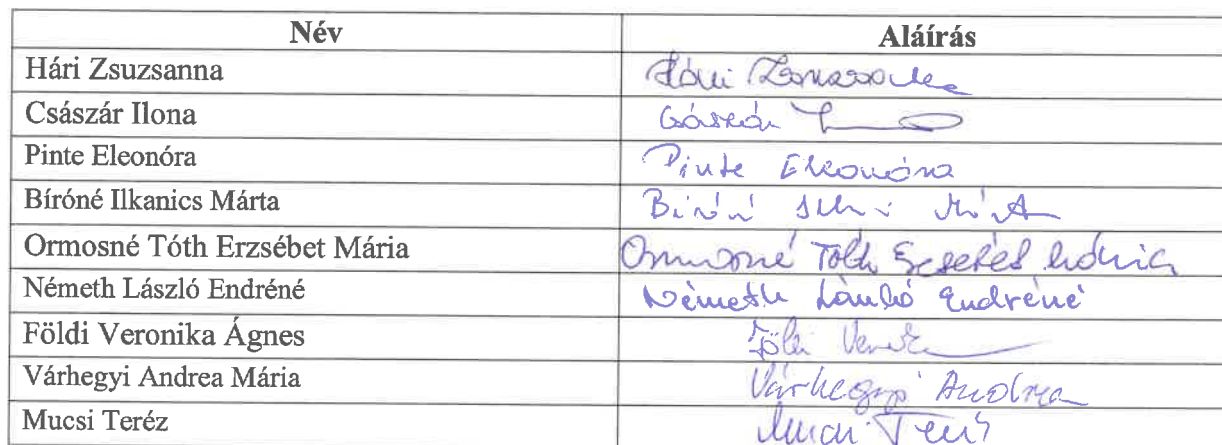 Név Aláírás
Hári Zsuzsanna Hári Zsuzsanna
Császár Ilona Császár
Pinte Eleonóra Pinte Eleonóra
Bíróné Ilkanics Márta Bíróné Márta
Ormosné Tóth Erzsébet Mária Ormosné Tóth Erzsébet Mária
Németh László Endréné Németh László Endréné
Földi Veronika Ágnes Földi
Várhegyi Andrea Mária Várhegyi Andrea
Mucsi Teréz Mucsi Teréz